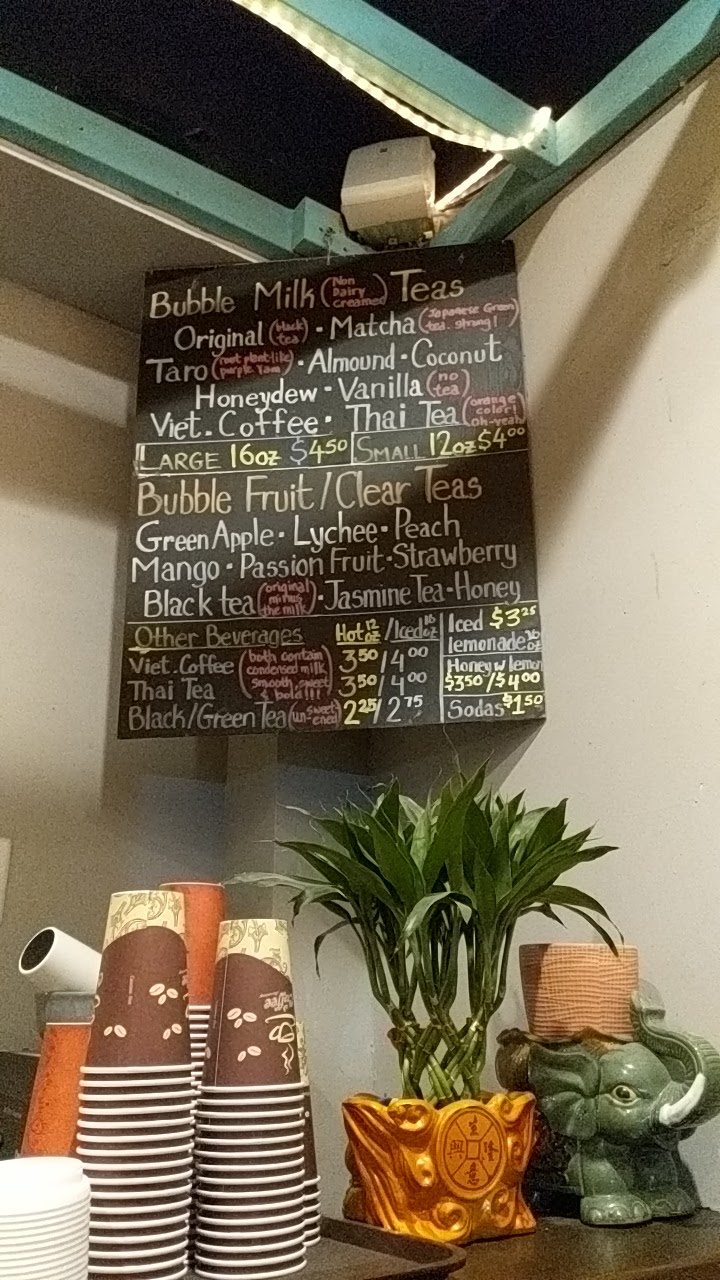 Bubble Milk (Non Dairy creamed) Teas
Original (black tea) · Matcha (Japanese Green tea. strong!)
Taro (root plant-like purple yam) · Almound · Coconut
Honeydew · Vanilla (no tea)
Viet. Coffee · Thai Tea (orange color! oh-yeah)
LARGE 16oz $4.50 SMALL 12oz $4.00
Bubble Fruit/Clear Teas
Green Apple · Lychee · Peach
Mango · Passion Fruit · Strawberry
Black tea (original minus the milk) · Jasmine Tea · Honey
Other Beverages Hot 12oz /Iced 16oz
Viet. Coffee (both contain condensed milk smooth, sweet & bold!!!) 3.50/4.00
Thai Tea 3.50/4.00
Black/Green Tea (un-sweetened) 2.25/2.75
Iced $3.25
lemonade 16oz
Honey w lemon
$3.50/$4.00
Sodas $1.50
生
興 隆
意